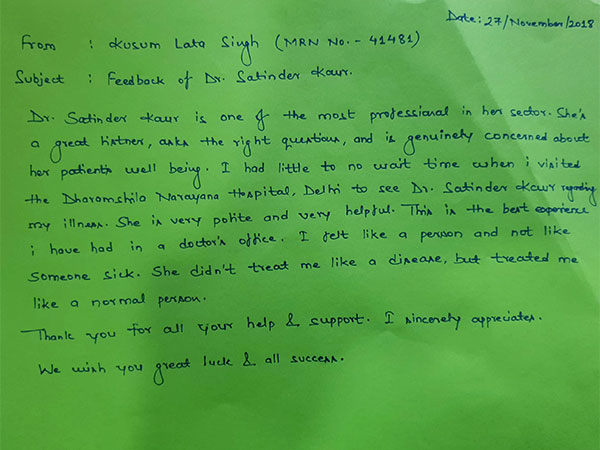 Date: 27/November/2018
From : Kusum Lata Singh (MRN No. - 41481)
Subject : Feedback of Dr. Satinder Kaur.
Dr. Satinder Kaur is one of the most professional in her sector. She's
a great listner, asks the right questions, and is genuinely concerned about
her patients well being. I had little to no wait time when i visited
the Dharamshila Narayana Hospital, Delhi to see Dr. Satinder Kaur regarding
my illness. She is very polite and very helpful. This is the best experience
i have had in a doctor's office. I felt like a person and not like
someone sick. She didn't treat me like a disease, but treated me
like a normal person.
Thank you for all your help & support. I sincerely appreciates.
We wish you great luck & all success.